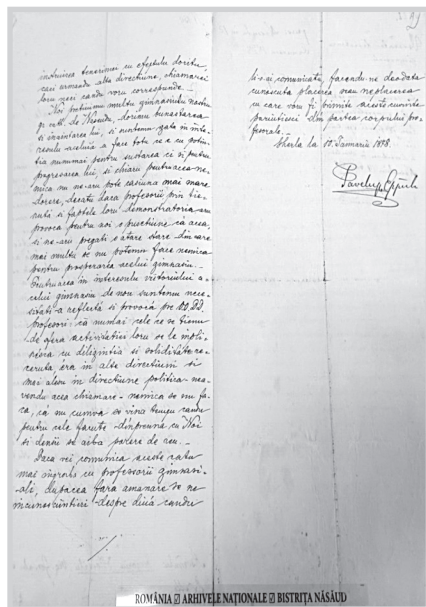 instruirea tenerimei cu efeptulu doritu,
cari urmandu alta directiune, chiamarei
loru neci candu voru corespunde. –
Noi pretiuimu multu gimnasiulu nostru
gr. cath. de Naseudu, dorimu bunastarea
si inaintarea lui, si suntemu gata in inte-
resulu aceluia a face totu ce e cu potin-
tia nu numai pentru sustarea ci si pentru
progresarea lui, si chiaru pentru acea ne-
mica nu ne-aru pote casiuna mai mare
dorere, decatu daca profesorii prin tie-
nuta si faptele loru demonstratoria aru
provoca pentru noi o pusetiune ca acea,
si ne-aru pregati o atare stare din care
mai multu se nu potemu face nemica
pentru prosperarea acelui gimnasiu. –
Pentru acea in interesulu viitoriului a-
celui gimnasiu de nou suntemu nece-
sitati a reflecta si provoca pre DD.
profesori: ca numai cele ce se tienu
de sfera activitatei loru se le impli-
nesca cu diligintia si soliditate re-
ceruta, era in alte directiuni si
mai alesu in directiune politica ne-
avendu acea chiamare – nemica se nu fa-
ca, ca nu cumva se vina tempu candu
pentru cele facute dinpreuna cu Noi
si densii se aiba parere de reu. –
Daca vei comunica aceste catu
mai ingraba cu professorii gimnasi-
ali, dupacea fara amanare se ne
incunoscintiezi despre diua candu
li-s'a comunicatu, facandu-ne deodata
cunoscuta placerea seau neplacerea
cu care voru fi primite aceste cuvinte
parintiesci din partea corpului pro-
fesorale. –
Gherla la 10. Januariu 1888.
ROMÂNIA ARHIVELE NAȚIONALE BISTRIȚA NĂSĂUD